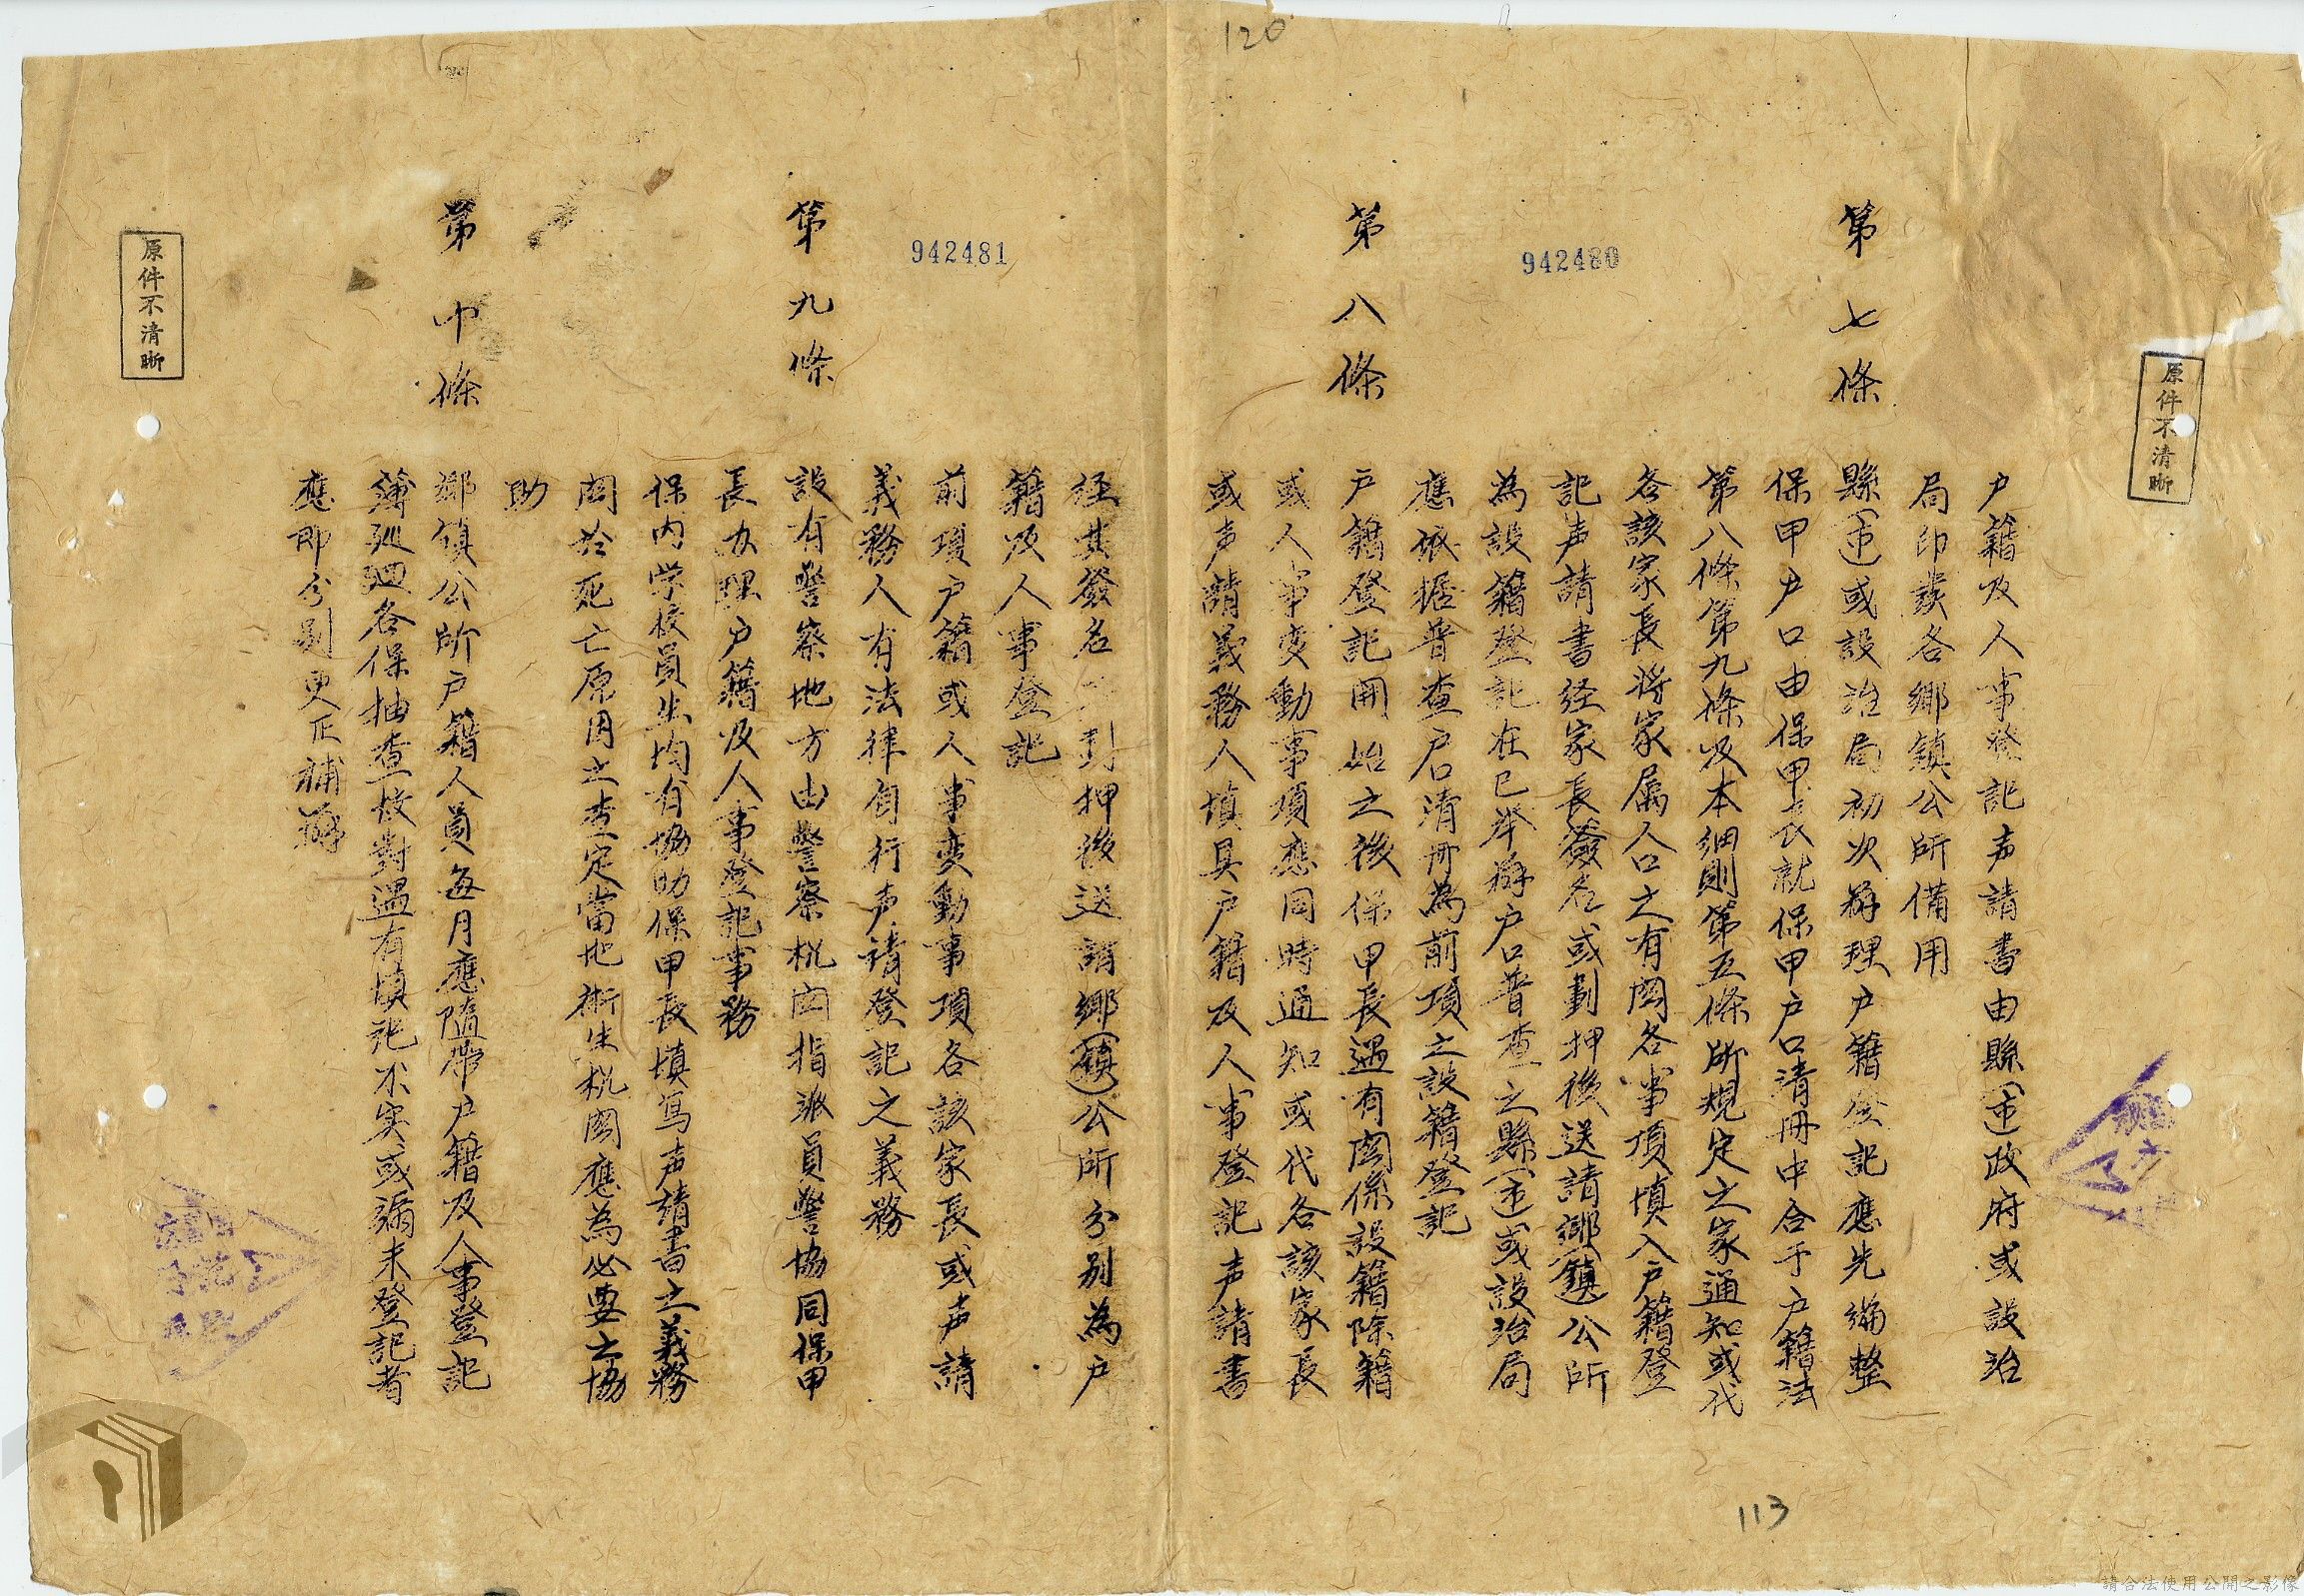 120
942480
942481
原件不清晰
戶籍及人事登記声請書由縣(市)政府或設治
局印發各鄉鎮公所備用
第七條
縣(市)或設治局初次辦理戶籍登記應先編整
保甲戶口由保甲長就保甲戶口清冊中合于戶籍法
第八條第九條及本細則第五條所規定之家通知或代
各該家長將家屬人口之有関各事項填入戶籍登
記声請書経家長簽名或劃押後送請鄉(鎮)公所
為設籍登記在已举辦戶口普查之縣(市)或設治局
應依据普查户口清冊為前項之設籍登記
第八條
戶籍登記開始之後保甲長遇有関係設籍除籍
或人事变動事項應同時通知或代各該家長
或声請義務人填具戶籍及人事登記声請書
経其簽名劃押後送請鄉(鎮)公所分別為戶
籍及人事登記
前項戶籍或人事变動事項各該家長或声請
義務人有法律自行声請登記之義務
第九條
設有警察地方由警察机関指派員警協同保甲
長办理户籍及人事登記事務
保内学校員生均有協助保甲長填写声請書之義務
関於死亡原因之查定當地衛生机関應為必要之協
助
第十條
鄉鎮公所户籍人員每月應隨帶户籍及人事登記
簿巡廻各保抽查核對遇有填記不实或漏未登記者
應即分別更正補辦
原件不清晰
113
請合法使用公開之影像